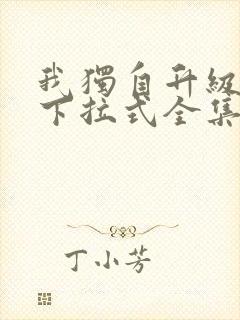 我獨自升級
下拉式全集
丁小芳